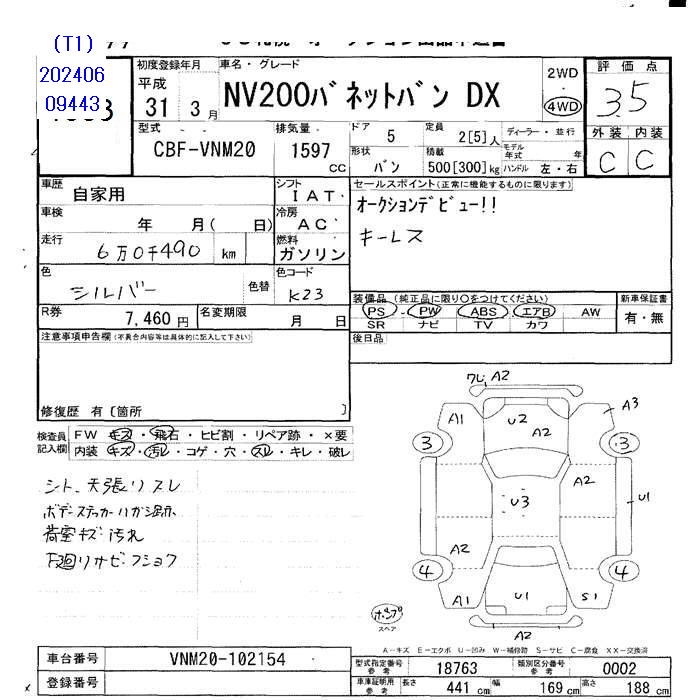 (T1)
202406
09443
初度登録年月
平成
31 3月
車名・グレード
NV200バネットバン DX
2WD
4WD
評価点
3.5
外装 内装
C C
型式
CBF-VNM20
排気量
1597
CC
ドア
5
定員
2[5]人
ディーラー・並行
形状
バン
積載
500[300]kg
モデル年式
年
ハンドル 左・右
車歴
自家用
シフト
IAT
セールスポイント(正常に機能するものに限ります)
オークションデビュー!!
キーレス
車検
年 月( 日)
冷房
AC
走行
6万0千490 km
燃料
ガソリン
色
シルバー
色替
色コード
K23
装備品(純正品に限り○をつけてください)
PS・PW ABS エアB AW
SR ナビ TV カワ
新車保証書
有・無
R券
7,460円
名変期限
月 日
後日品
注意事項申告欄(不具合内容等は具体的に記入して下さい)
修復歴 有〔箇所 〕
検査員記入欄
FW キズ・飛石・ヒビ割・リペア跡・×要
内装 キズ・汚レ・コゲ・穴・スレ・キレ・破レ
シト、天張リスレ
ボデーステッカーハガシ跡
荷室キズ汚れ
下廻リサビフショク
ワレ A2
A1
U2
A2
A3
3
3
A2
U3
U1
A2
4
4
A1
U1
S1
A2
ポンプ
スペア
A-キズ E-エクボ U-凹み W-補修跡 S-サビ C-腐食 XX-交換済
車台番号
VNM20-102154
登録番号
型式指定番号
参考
18763
類別区分番号
参考
0002
車庫証明用
参考
長さ 441cm 幅 169cm 高さ 188cm